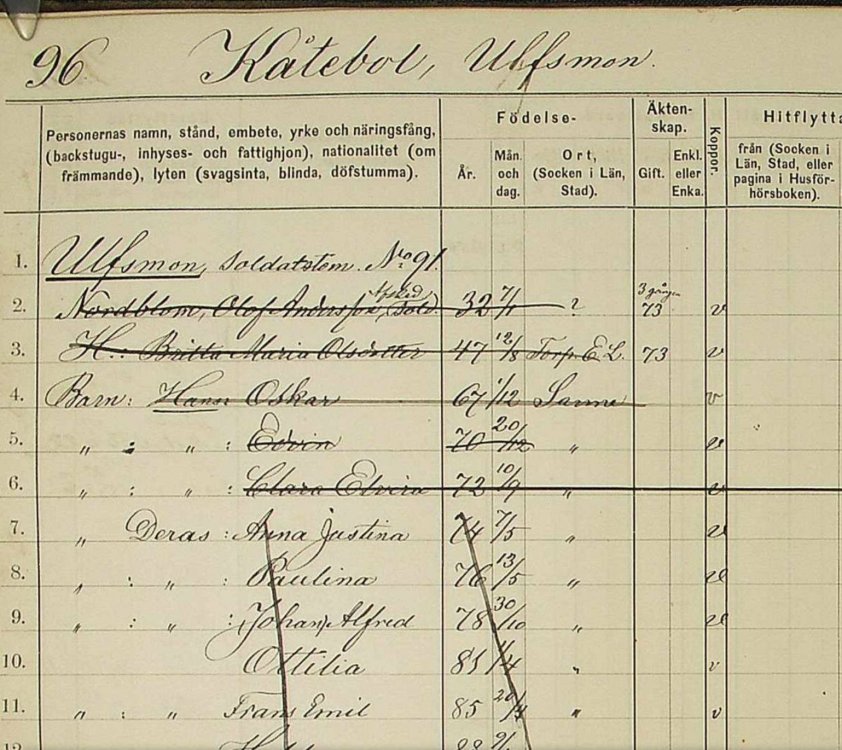 96 Kåtebol, Ulfsmon.
Personernas namn, stånd, embete, yrke och näringsfång, (backstugu-, inhyses- och fattighjon), nationalitet (om främmande), lyten (svagsinta, blinda, döfstumma).
Födelse-
År. Mån. och dag. Ort, (Socken i Län, Stad).
Äkten-skap.
Gift. Enkl. eller Enka.
Koppor.
Hitflytta
från (Socken i Län, Stad, eller pagina i Husför-hörsboken).
1. Ulfsmon, Soldatstom. No 91.
2. Nordblom, Olof Andersson, Afsked. Sold. 32 7/1 ? 3 gången 73 v
3. H.: Britta Maria Olsdotter 47 12/8 Torp E.L. 73 v
4. Barn: Hans: Oskar 67 1/12 Sanne v
5. " : " : Edvin 70 20/12 " v
6. " : " : Clara Elvira 72 10/9 " v
7. " Deras: Anna Justina 74 7/5 " v
8. " : " : Paulina 76 13/5 " v
9. " : " : Johan Alfred 78 30/10 " v
10. Ottilia 81 " v
11. " : " Frans Emil 85 " v
12. 88